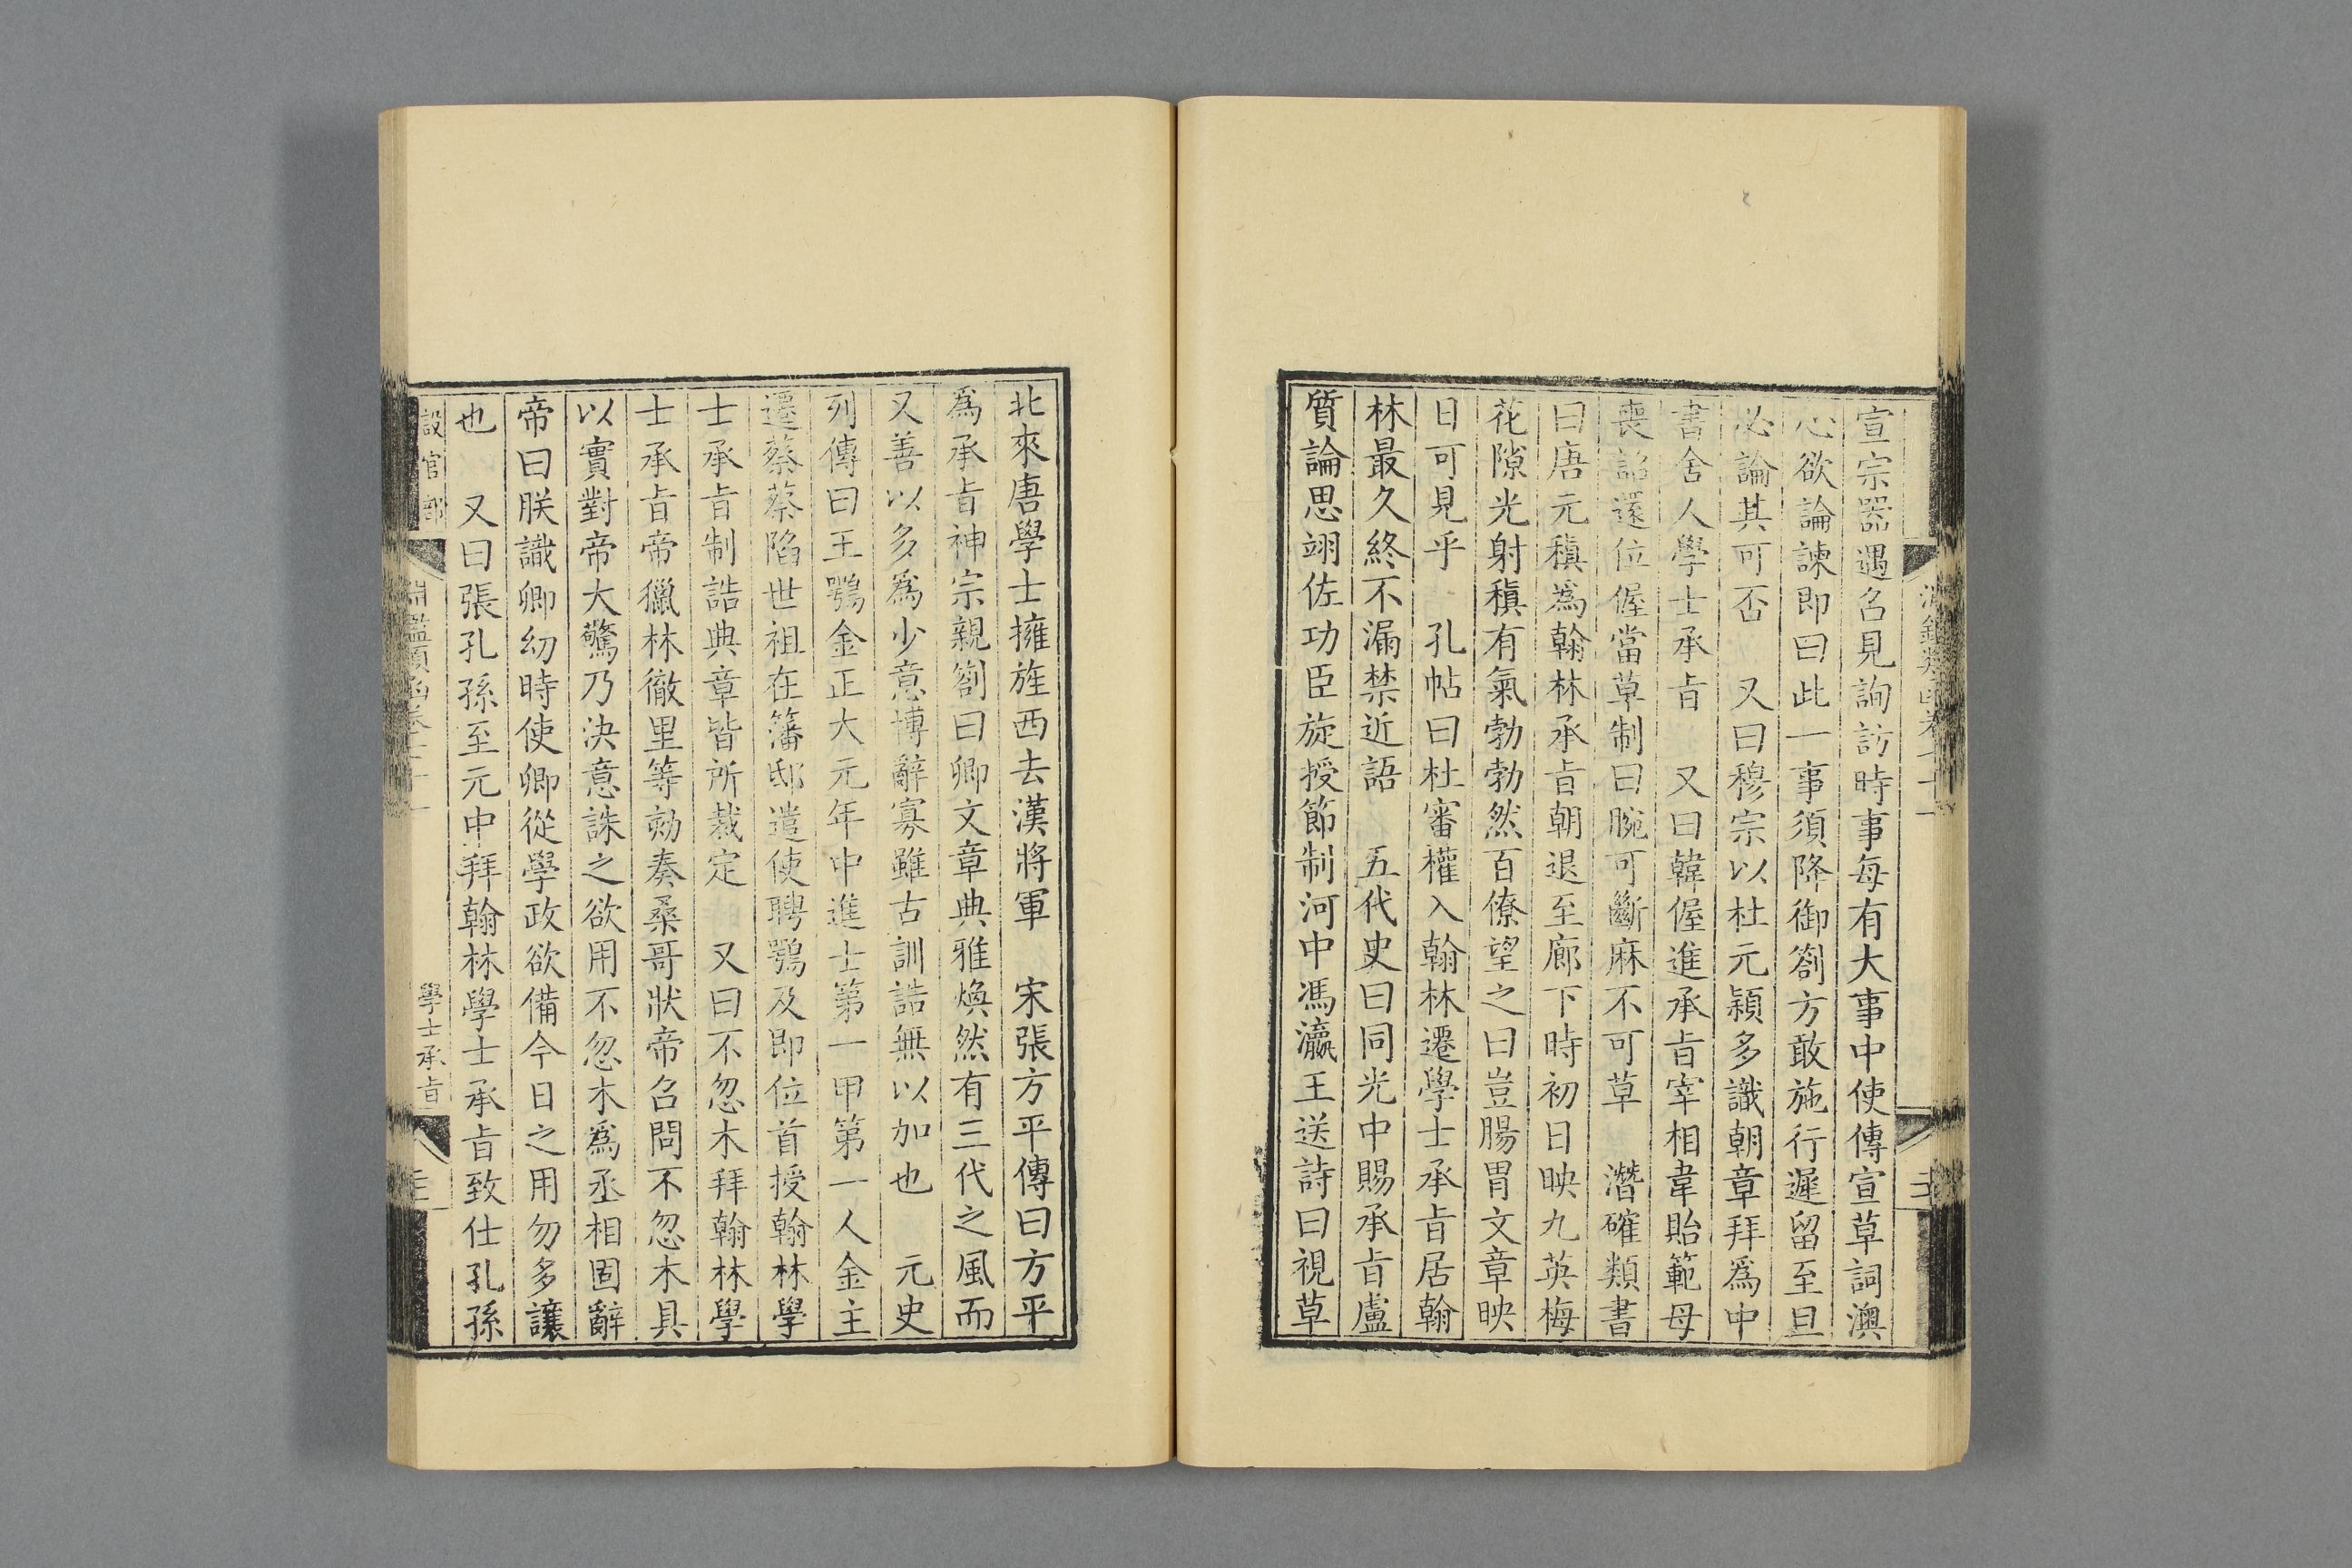 宣宗器遇召見詢訪時事每有大事中使傳宣草詞澳
心欲論諫即曰此一事須降御劄方敢施行遲留至旦
必論其可否　又曰穆宗以杜元穎多識朝章拜爲中
書舍人學士承旨　又曰韓偓進承旨宰相韋貽範母
喪詔還位偓當草制曰腕可斷麻不可草　潛確類書
曰唐元稹爲翰林承旨朝退至廊下時初日映九英梅
花隙光射稹有氣勃勃然百僚望之曰豈腸胃文章映
日可見乎　孔帖曰杜審權入翰林遷學士承旨居翰
林最久終不漏禁近語　五代史曰同光中賜承旨盧
質論思翊佐功臣旋授節制河中馮瀛王送詩曰視草
北來唐學士擁旌西去漢將軍　宋張方平傳曰方平
爲承旨神宗親劄曰卿文章典雅煥然有三代之風而
又善以多爲少意博辭寡雖古訓誥無以加也　元史
列傳曰王鶚金正大元年中進士第一甲第一人金主
遷蔡蔡陷世祖在籓邸遣使聘鶚及即位首授翰林學
士承旨制誥典章皆所裁定　又曰不忽木拜翰林學
士承旨帝獵林徹里等劾奏桑哥狀帝召問不忽木具
以實對帝大驚乃決意誅之欲用不忽木爲丞相固辭
帝曰朕識卿幼時使卿從學政欲備今日之用勿多讓
也　又曰張孔孫至元中拜翰林學士承旨致仕孔孫
設官部
學士承旨